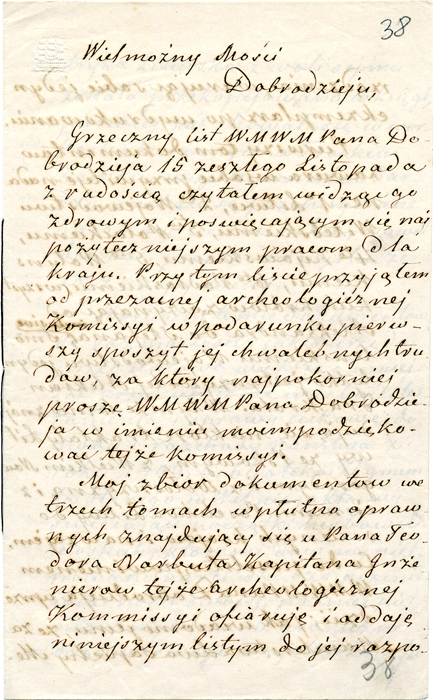 38
Wielmożny Mości
Dobrodzieju,
Grzeczny list WMWM Pana Do-
brodzieja 15 zeszłego Listopada
z radością czytałem widząc go
zdrowym i poswięcającym się naj
pożyteczniejszym pracom dla
kraju. Przy tym liscie przyjąłem
od przezacnej archeologicznej
Komissyi w podarunku pierw-
szy sposzyt jej chwalebnych tru
dów, za który najpokorniej
proszę WMWM Pana Dobrodzie-
ja w imieniu moim podzięko-
wać tejże komissyi.
Moj zbior dokumentow we
trzech tomach w płutno opraw
nych znajdujący się u Pana Teo-
dora Narbuta Kapitana Inże
nierow tejże Archeologicznej
Kommissyi ofiaruję i oddaję
niniejszym listym do jej rozpo-
38